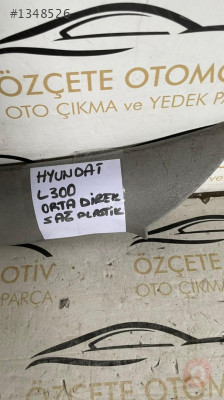 #1348526
ÖZÇETE OTOMO
OTO ÇIKMA ve YEDEK P
HYUNDAİ
L300
ORTA DİREK
SAĞ PLASTİK
OTİV
PARÇA
ÖZÇETE
OTO ÇIKMA
sahibinden.com